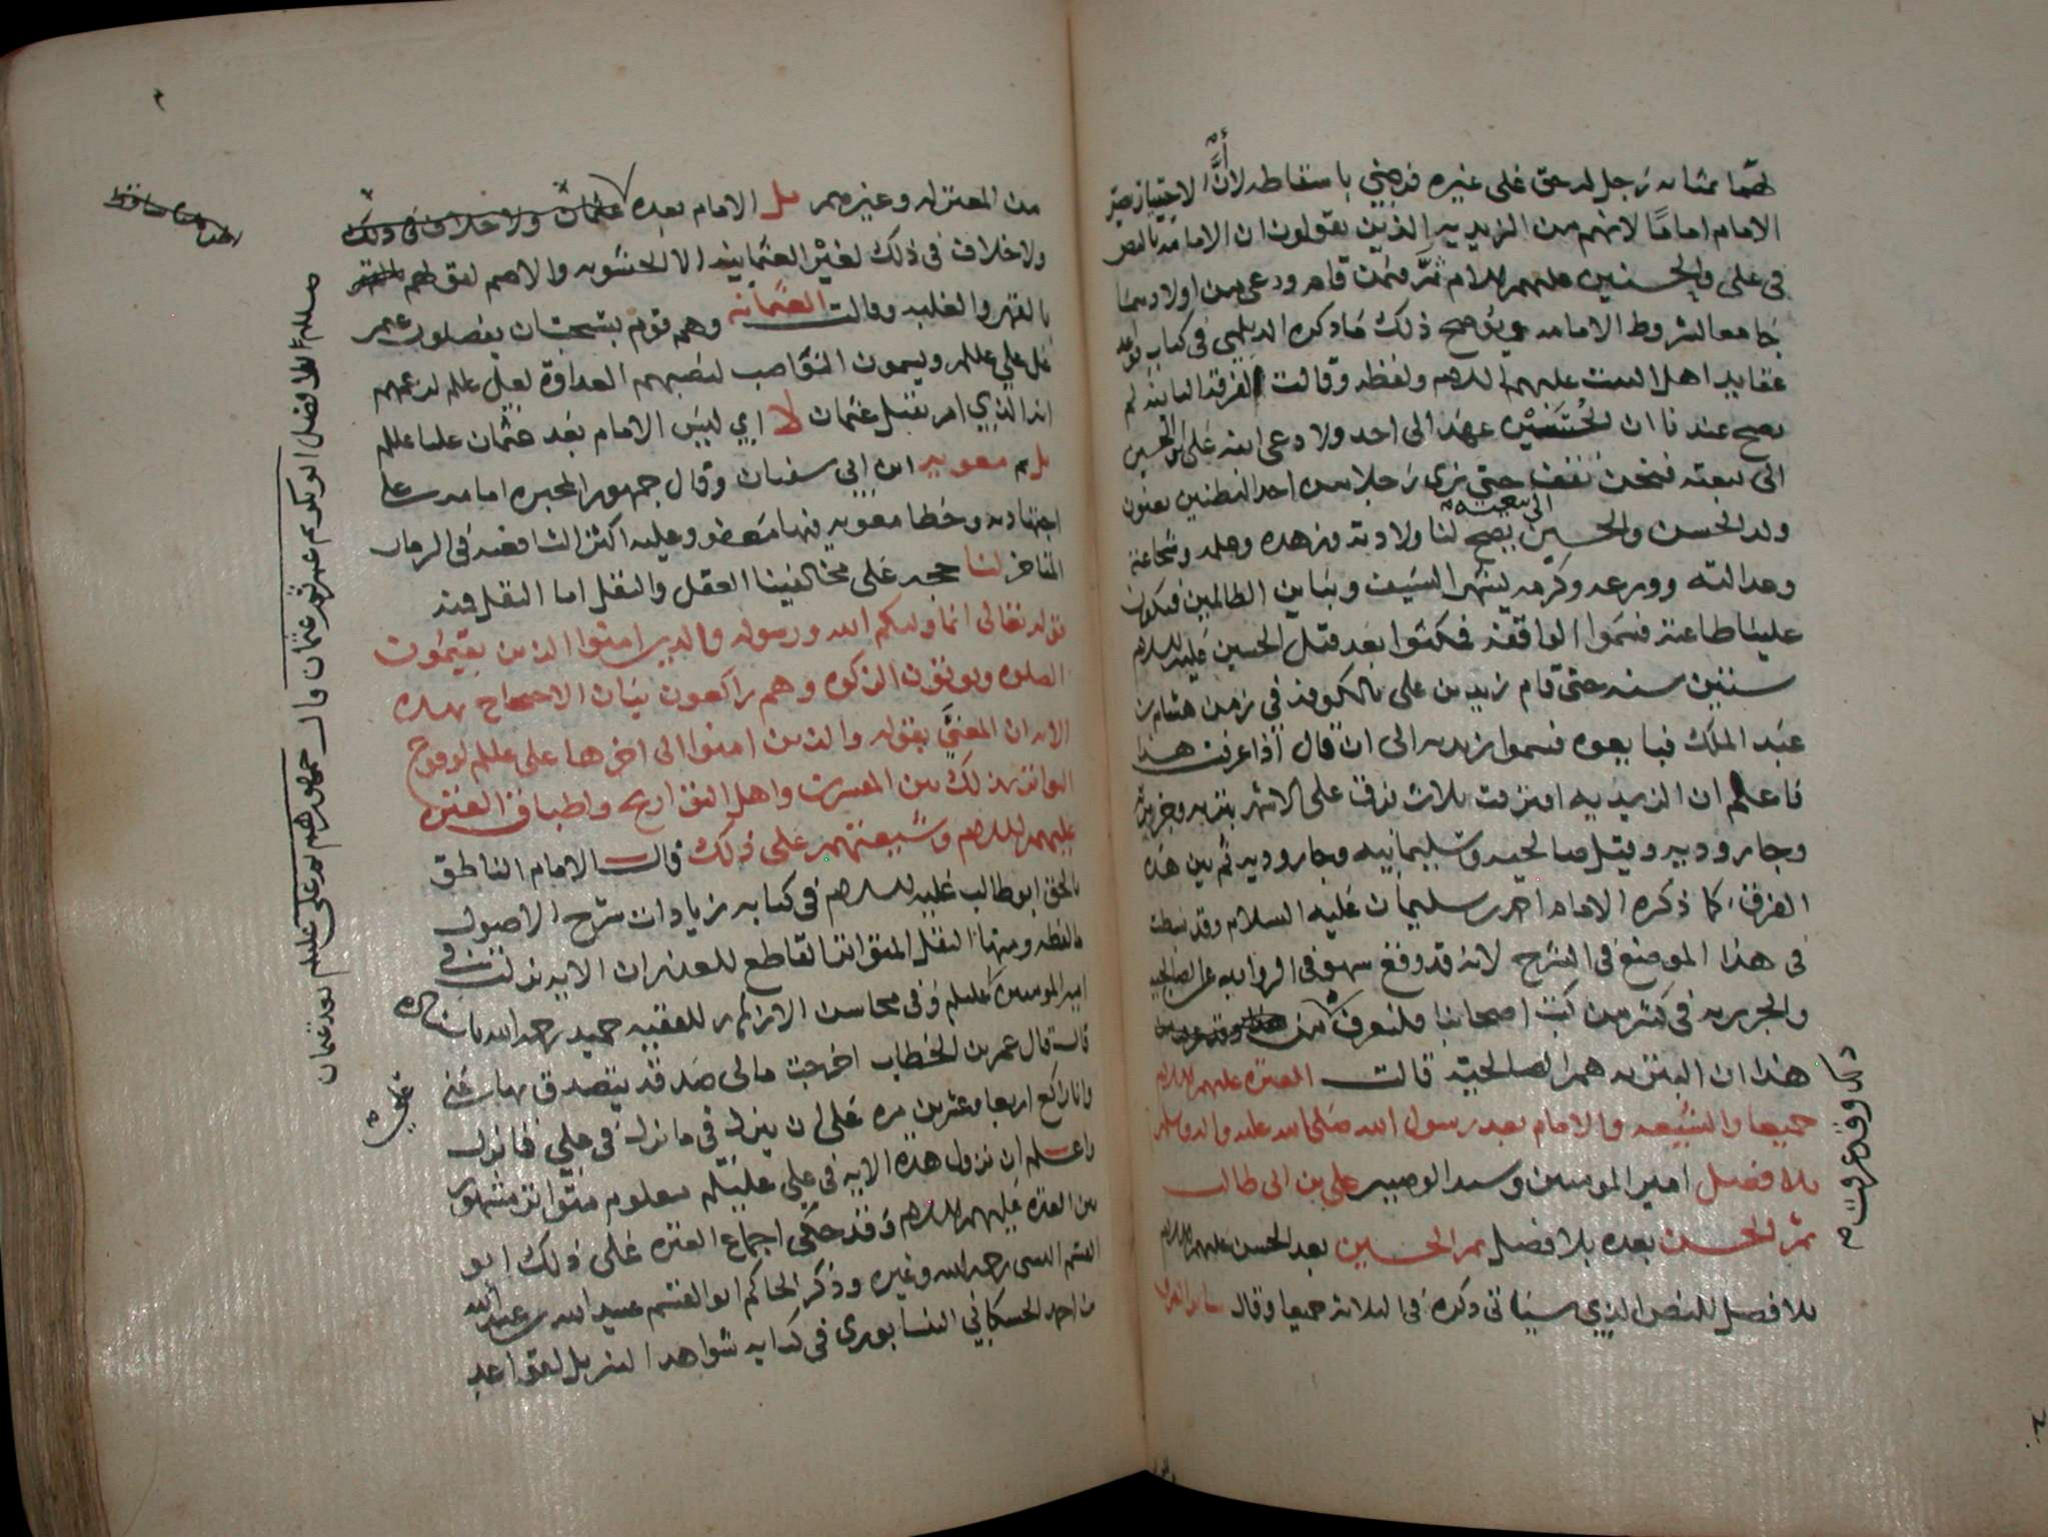 لهما بمثابه رجل له حق على غيره فرضي باسقاطه لانَّ الاختيار يصير
الامام اماما لانهم من الزيديه الذين يقولون ان الامامه بالنص
في على والحسنين عليهم السلام ثمَّ فيمن قام ودعى من اولادهما
جامعا لشروط الامامه ويوضح ذلك ماذكره الديلمي في كتاب قواعد
عقايد اهل البيت عليهم السلام ولفظه وقالت الفرقه الثانيه لم
يصح عندنا ان الحسين عهد الى احد ولا دعى ابنه على بن الحسين
الى بيعته فنحن نقف حتى نرى رجلا من احد البطنين يعنون
ولد الحسن والحسين يصح لنا ولادته وزهده وعلمه وشجاعته
وعدالته وورعه وكرمه يشهر السيف ويباين الظالمين فيكون
علينا طاعته فسموا الواقفه فمكثوا بعد قتل الحسين عليه السلام
سنين سنه حتى قام زيد بن على بالكوفه في زمن هشام بن
عبد الملك فبايعوه فسموا زيديه الى ان قال اذا عرفت هذا
فاعلم ان الزيديه افترقت ثلاث فرق على الاشهر بتريه وجريريه
وجاروديه وقيل صالحيه وسليمانيه وجاروديه ثم بين هذه
الفرق كما ذكره الامام احمد بن سليمان عليه السلام وقد بسطت
في هذا الموضع في الشرح لانه قد وقع سهو في الروايه عن الصالحيه
والجريريه في كثير من كتب اصحابنا فليعرف من
ذلك وقد عرفت
هذا ان البتريه هم الصالحيه قالت العتره عليهم السلام
جميعا والشيعه والامام بعد رسول الله صلى الله عليه واله وسلم
بلا فصل امير المومنين وسيد الوصيين على بن ابى طالب
ثم الحسن بعده بلا فصل ثم الحسين بعد الحسن عليهم السلام
بلا فصل للنص الذي سياتي ذكره في الثلاثه جميعا وقال سائر الفرق
من المعتزله وغيرهم بل الامام بعده عثمان ولا خلاف في ذلك
ولا خلاف في ذلك لغير العثمانيه الا الحشويه والاصم
بالقهر والغلبه وقالت العثمانيه وهم قوم بسجستان يفضلون عمر
على علي عليلم ويسمون النواصب لنصبهم العداوة لعلى عليلم لزعمهم
انه الذي امر بقتل عثمان لا اي ليس الامام بعد عثمان عليا عليلم
بل هم معويه ابن ابي سفيان وقال جمهور المجبره امامه على
اجتهاديه وخطا معويه فيها معفو وعليه اكثر الشافعيه في الزمان
المتاخر لنا حجه على مخالفينا العقل والنقل اما النقل فمنه
قوله تعالى انما وليكم الله ورسوله والذين امنوا الذين يقيمون
الصلوه ويوتون الزكوه وهم راكعون بيان الاحتجاج بهذه
الايه ان المعنيَّ بقوله والذين امنوا الى اخرها على عليلم لوقوع
التواتر بذلك من المفسرين واهل التواريخ واطباق العتره
عليهم السلام وشيعتهم على ذلك قال الامام الناطق
بالحق ابو طالب عليه السلام في كتابه زيادات شرح الاصول
مالفظه ومنها النقل المتواتر القاطع للعذر ان الايه نزلت في
امير المومنين عليلم وفي محاسن الازهار للفقيه حميد رحمه الله باسناده
قال قال عمر بن الخطاب اخرجت مالى صدقه يتصدق بها عني
وانا راكع اربعا وعشرين مره على ان ينزل في ما نزل في علي فما نزل
واعلم ان نزول هذه الايه في علي عليلم معلوم متواتر مشهور
بين العتره عليهم السلام وقد حكى اجماع العتره على ذلك ابو
القسم البستي رحمه الله وغيره وذكر الحاكم ابو القسم عبيد الله بن عبد الله
بن احمد الحسكاني النيسابوري في كتابه شواهد التنزيل لقواعد
قال جمهورهم ثم على عليلم بعد عثمان